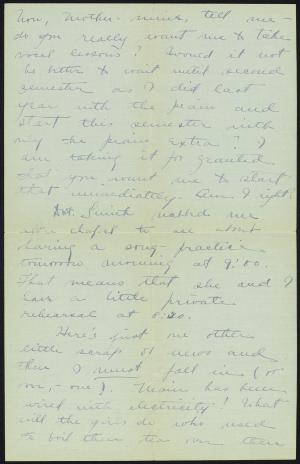 Now, Mother-mine, tell me -
do you really want me to take
vocal lessons? Would it not
be better to wait until second
semester as I did last
year with the piano and
start this semester with
only the piano extra? I
am taking it for granted
that you want me to start
that immediately. Am I right.
Dot. Smith walked me
after chapel to see about
having a song-practice
tomorrow morning at 9:00.
That means that she and I
have a little private
rehearsal at 8:30.
Here's just one other
little scrap of news and
then I must fall in (or
on, - one). Main has been
wired with electricity! What
will the girls do who used
to boil their tea over their